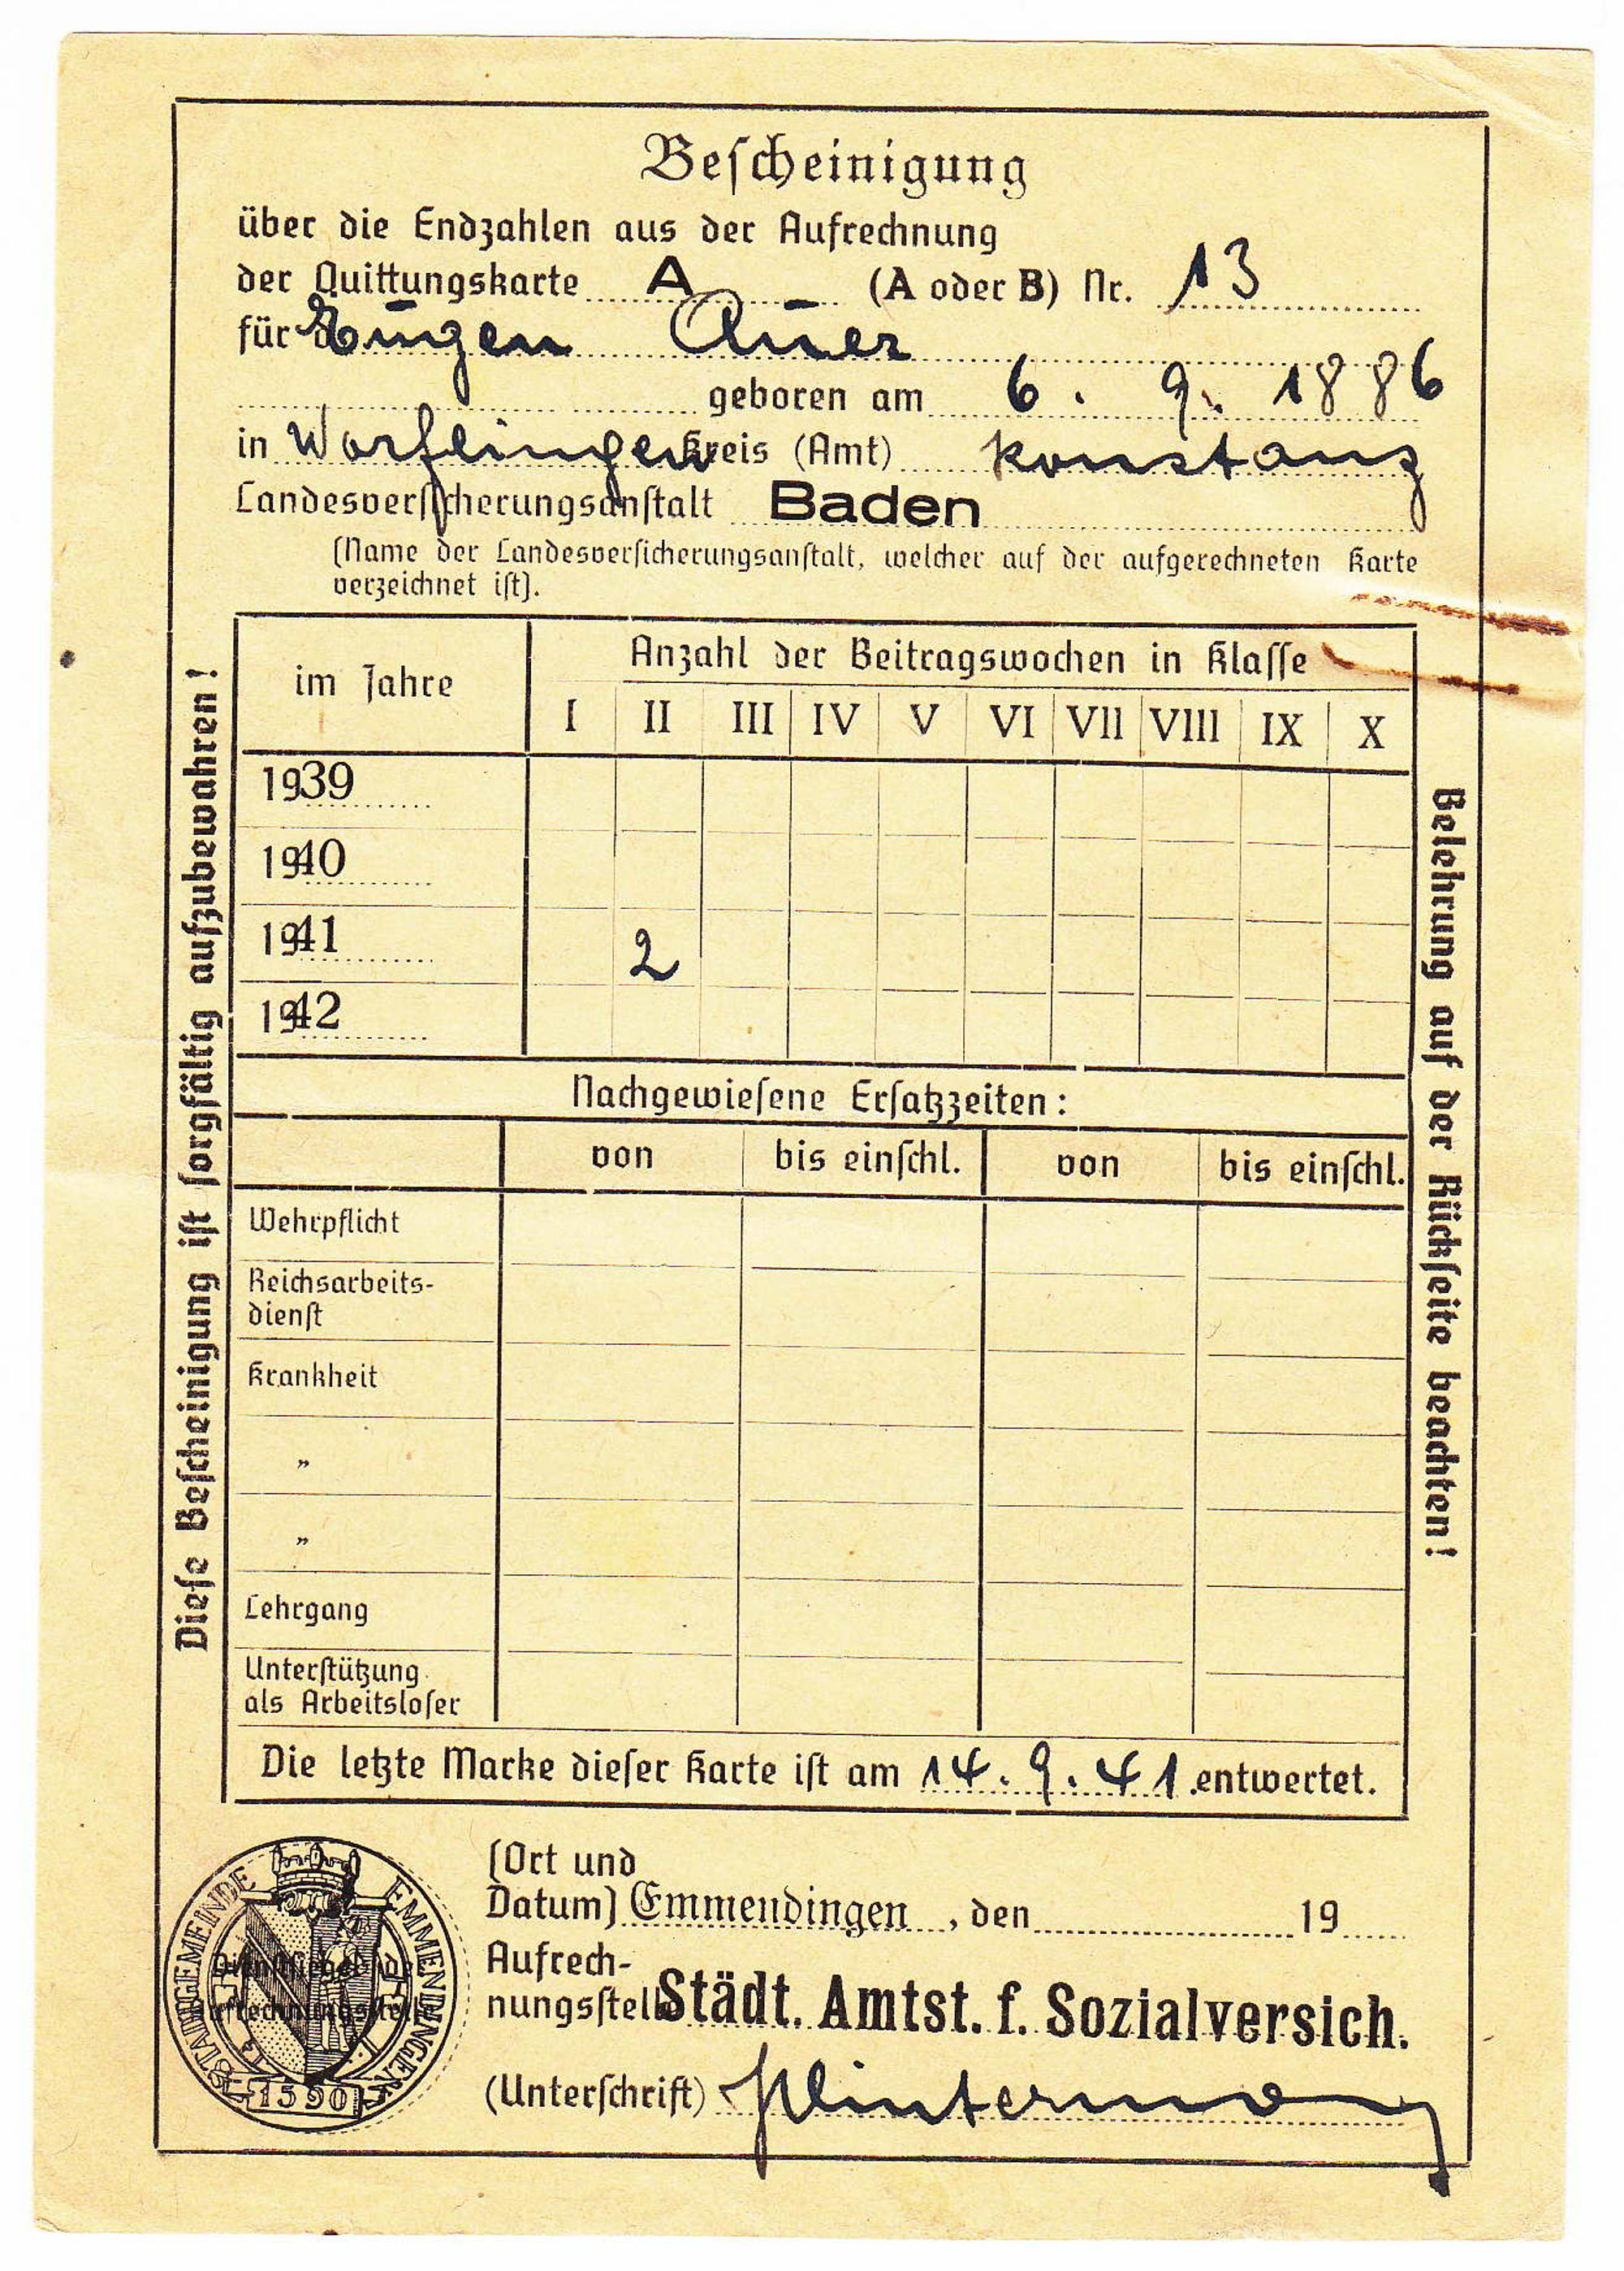 Bescheinigung
über die Endzahlen aus der Aufrechnung
der Quittungskarte A (A oder B) Nr. 13
für Eugen Auer
geboren am 6. 9. 1886
in Worflingen Kreis (Amt) Konstanz
Landesversicherungsanstalt Baden
(Name der Landesversicherungsanstalt, welcher auf der aufgerechneten Karte
verzeichnet ist).
im Jahre
Anzahl der Beitragswochen in Klasse
I II III IV V VI VII VIII IX X
1939
1940
1941 2
1942
Nachgewiesene Ersatzzeiten:
von bis einschl. von bis einschl.
Wehrpflicht
Reichsarbeits-
dienst
Krankheit
"
"
Lehrgang
Unterstützung
als Arbeitsloser
Die letzte Marke dieser Karte ist am 14. 9. 41 entwertet.
(Ort und
Datum) Emmendingen, den 19
Aufrech-
nungsstelle Städt. Amtst. f. Sozialversich.
(Unterschrift)
STADTGEMEINDE EMMENDINGEN
1590
Diese Bescheinigung ist sorgfältig aufzubewahren!
Belehrung auf der Rückseite beachten!